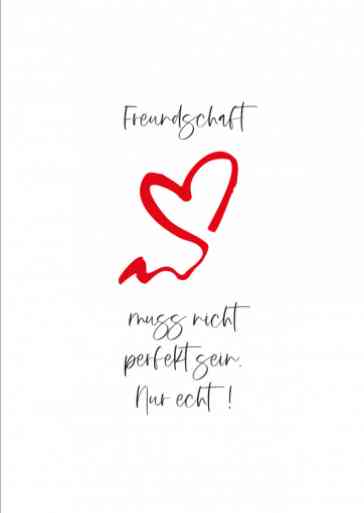 Freundschaft
muss nicht
perfekt sein.
Nur echt !